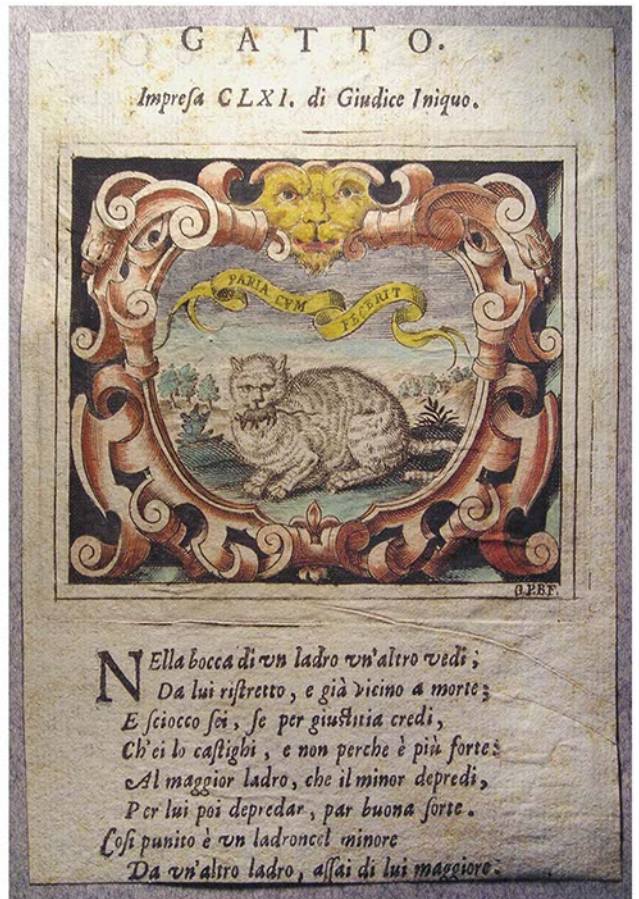 GATTO.
Impreſa CLXI. di Giudice Iniquo.
PARIA CVM
FECERIT
G.P.B.F.
NElla bocca di vn ladro vn'altro vedi;
Da lui riſtretto, e già vicino a morte;
E ſciocco ſei, ſe per giuſtitia credi,
Ch'ei lo caſtighi, e non perche è più forte:
Al maggior ladro, che il minor depredi,
Per lui poi depredar, par buona ſorte.
Coſi punito è vn ladroncel minore
Da vn'altro ladro, aſſai di lui maggiore.